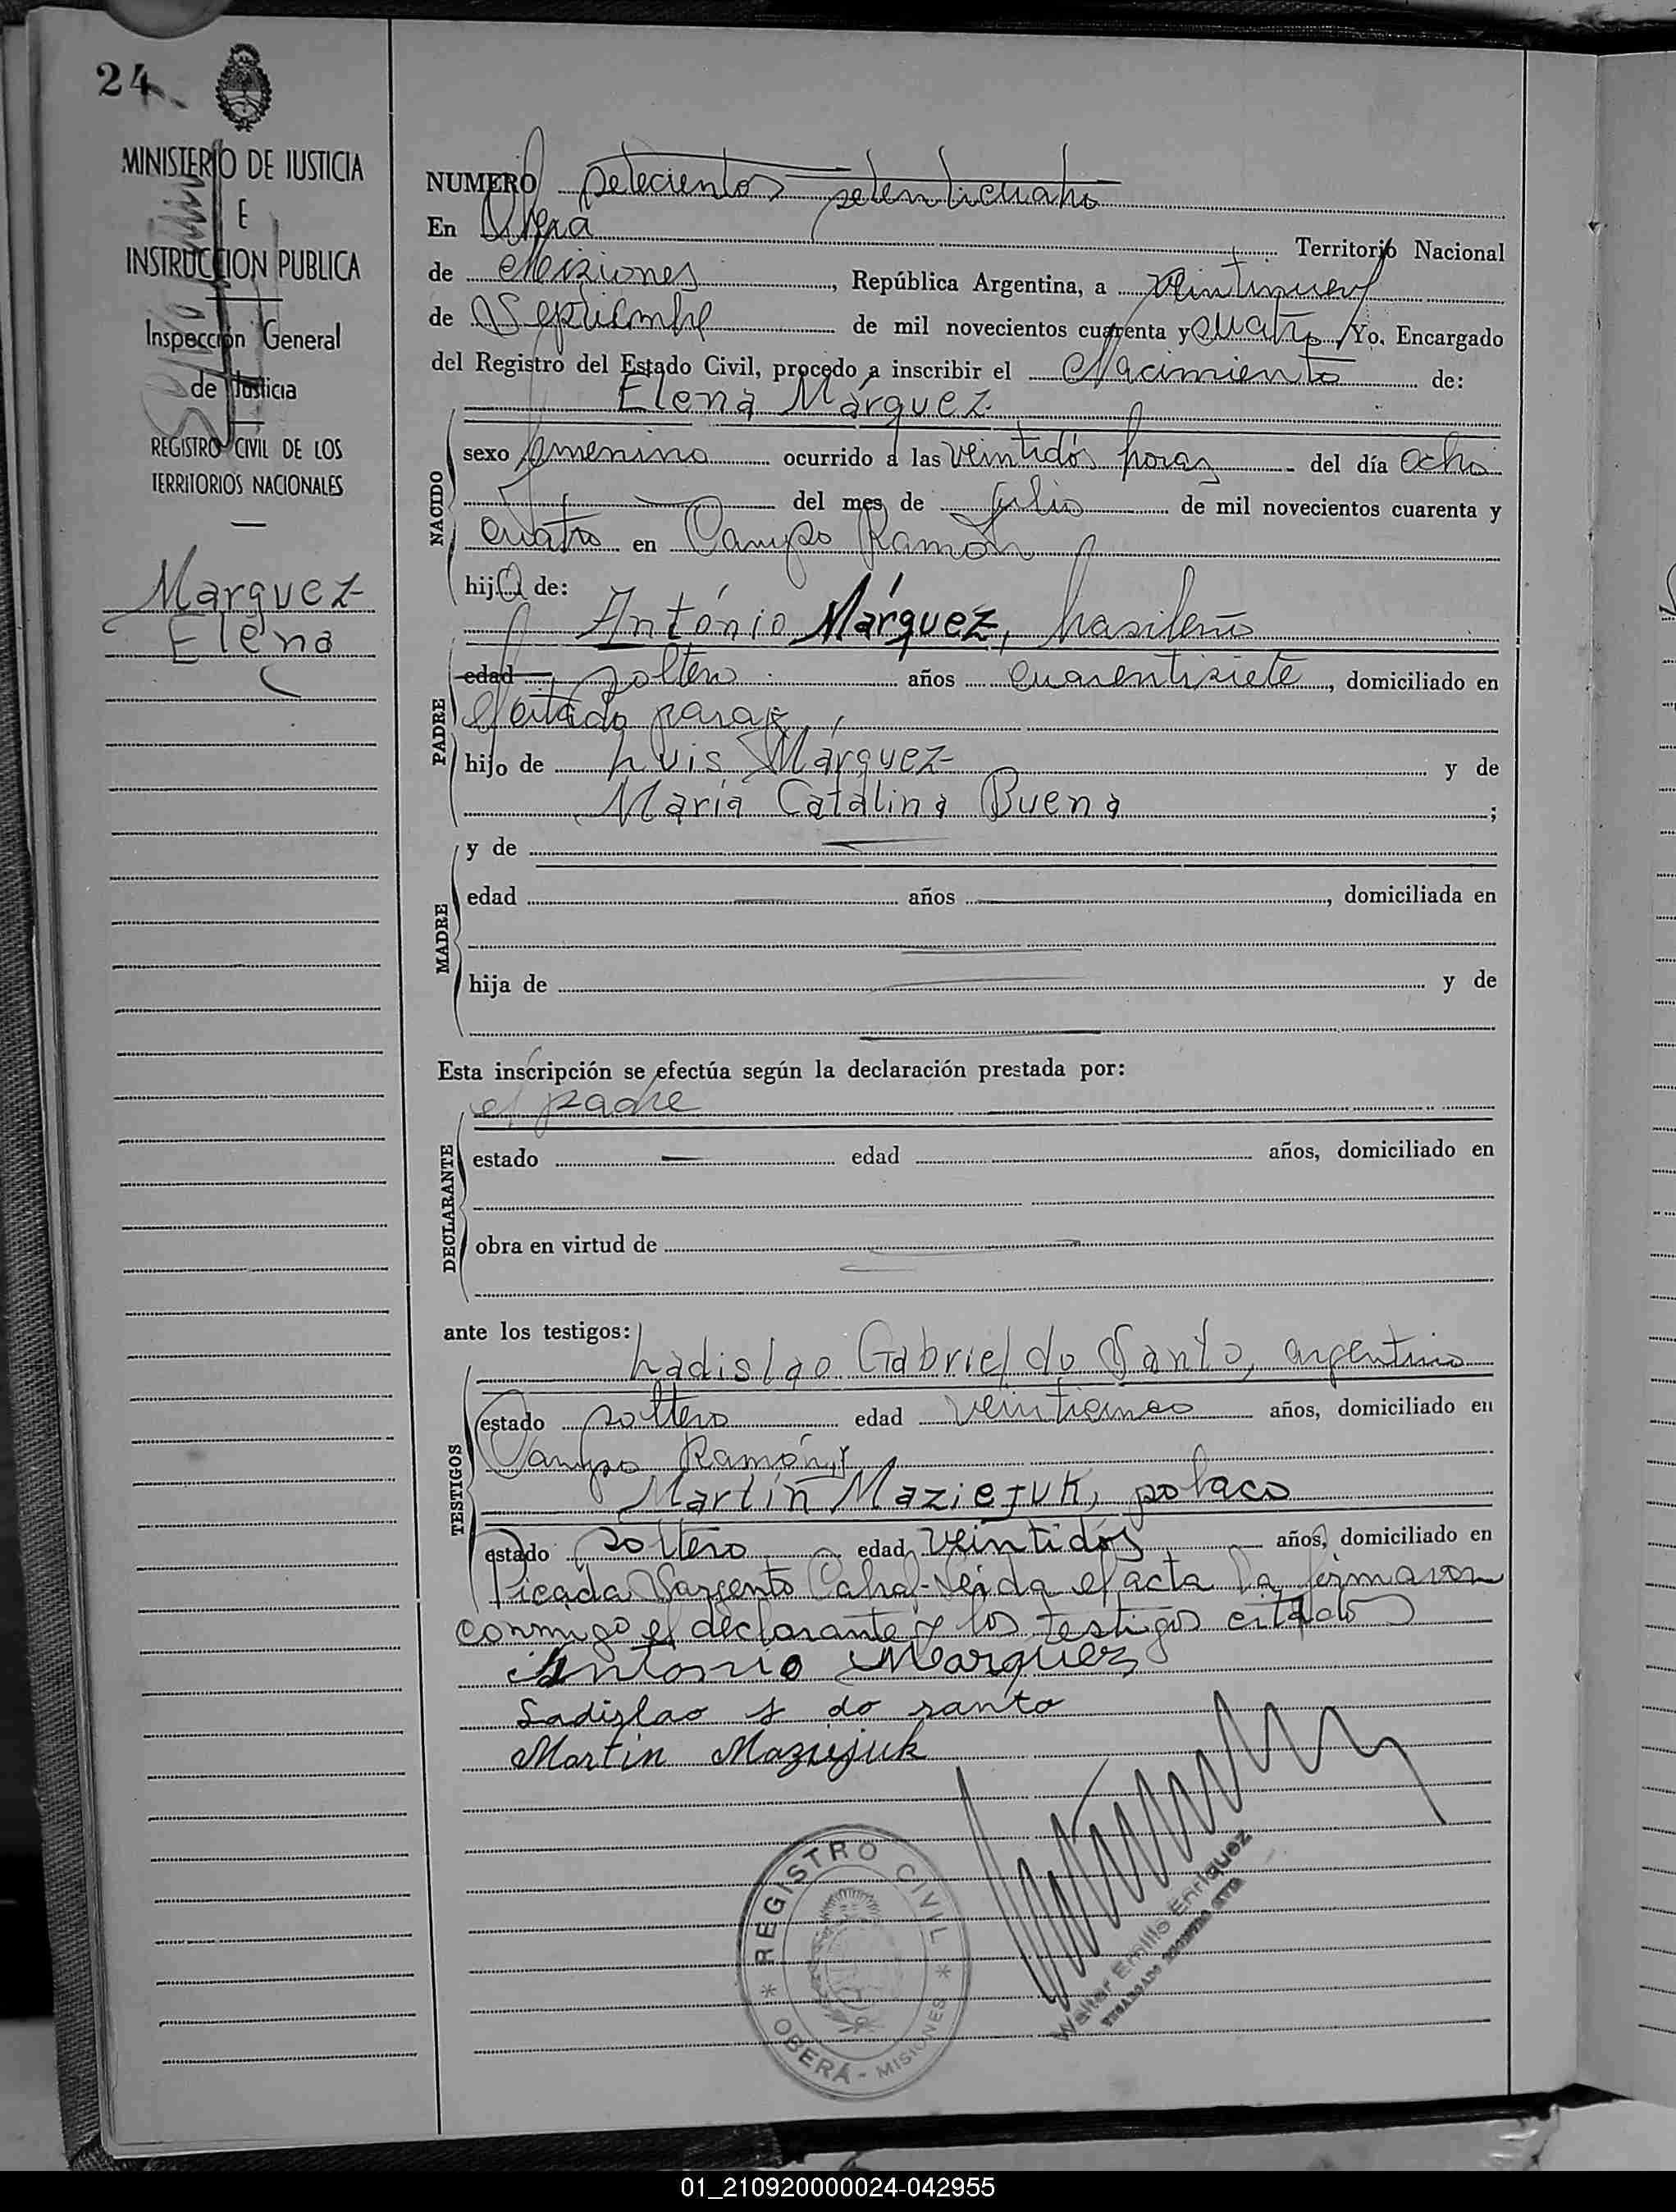 24
MINISTERIO DE JUSTICIA
E
INSTRUCCION PUBLICA
Inspección General
de Justicia
REGISTRO CIVIL DE LOS
TERRITORIOS NACIONALES
Marquez
Elena
NUMERO setecientos setenticuatro
En Oberá Territorio Nacional
de Misiones, República Argentina, a veintinueve
de Septiembre de mil novecientos cuarenta y cuatro, Yo, Encargado
del Registro del Estado Civil, procedo a inscribir el Nacimiento de:
Elena Márquez
NACIDO
sexo femenino ocurrido a las veintidós horas del día ocho
del mes de julio de mil novecientos cuarenta y
cuatro en Campo Ramón
hija de:
António Márquez, brasileño
PADRE
edad soltero años cuarentisiete, domiciliado en
el citado paraje,
hijo de Luis Márquez y de
María Catalina Buena ;
MADRE
y de
edad años , domiciliada en
hija de y de
Esta inscripción se efectúa según la declaración prestada por:
el padre
DECLARANTE
estado edad años, domiciliado en
obra en virtud de
ante los testigos:
Ladislao Gabriel do Santo, argentino
TESTIGOS
estado soltero edad veinticinco años, domiciliado en
Campo Ramón y
Martín Maziejuk, polaco
estado soltero edad veintidós años, domiciliado en
Picada Sargento Cabral-Leída el acta la firmaron
conmigo el declarante y los testigos citados
Antonio Marquez
Ladizlao do santo
Martin Maziejuk
REGISTRO CIVIL
OBERÁ - MISIONES
Walter Emilio Enriquez
ENCARGADO REGISTRO CIVIL
01_210920000024-042955